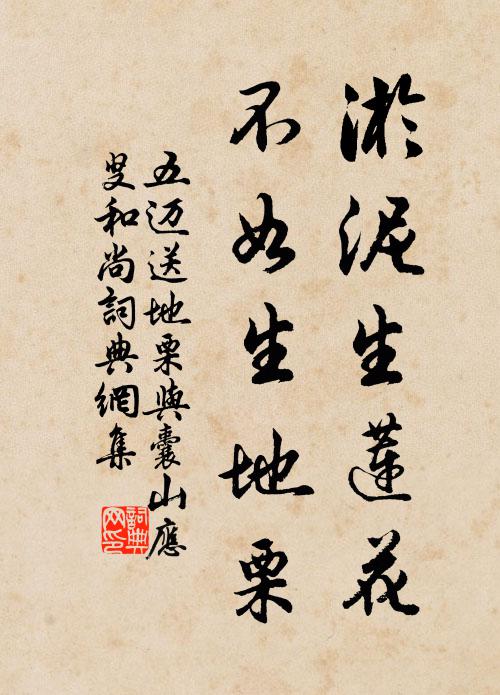 淤泥生蓮花
不如生地栗
五迈送地栗與囊山應
叟和尚詞典網集
詞典
网印